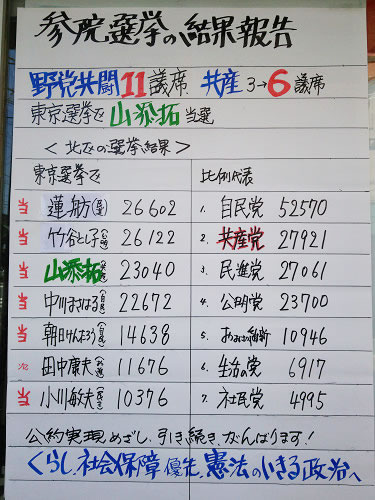 参院選挙の結果報告
野党共闘11議席 共産3→6議席
東京選挙区 山添拓 当選
<北区の選挙結果>
東京選挙区
当 蓮舫 26602
当 竹谷とし子 26122
当 山添拓 23040
当 中川まさはる 22672
当 朝日けんたろう 14638
田中康夫 11676
当 小川敏夫 10376
比例代表
1. 自民党 52570
2. 共産党 27921
3. 民進党 27061
4. 公明党 23700
5. おおさか維新 10946
6. 生活の党 6917
7. 社民党 4995
公約実現めざし、引き続き、がんばります!
くらし、社会保障優先、憲法のいきる政治へ